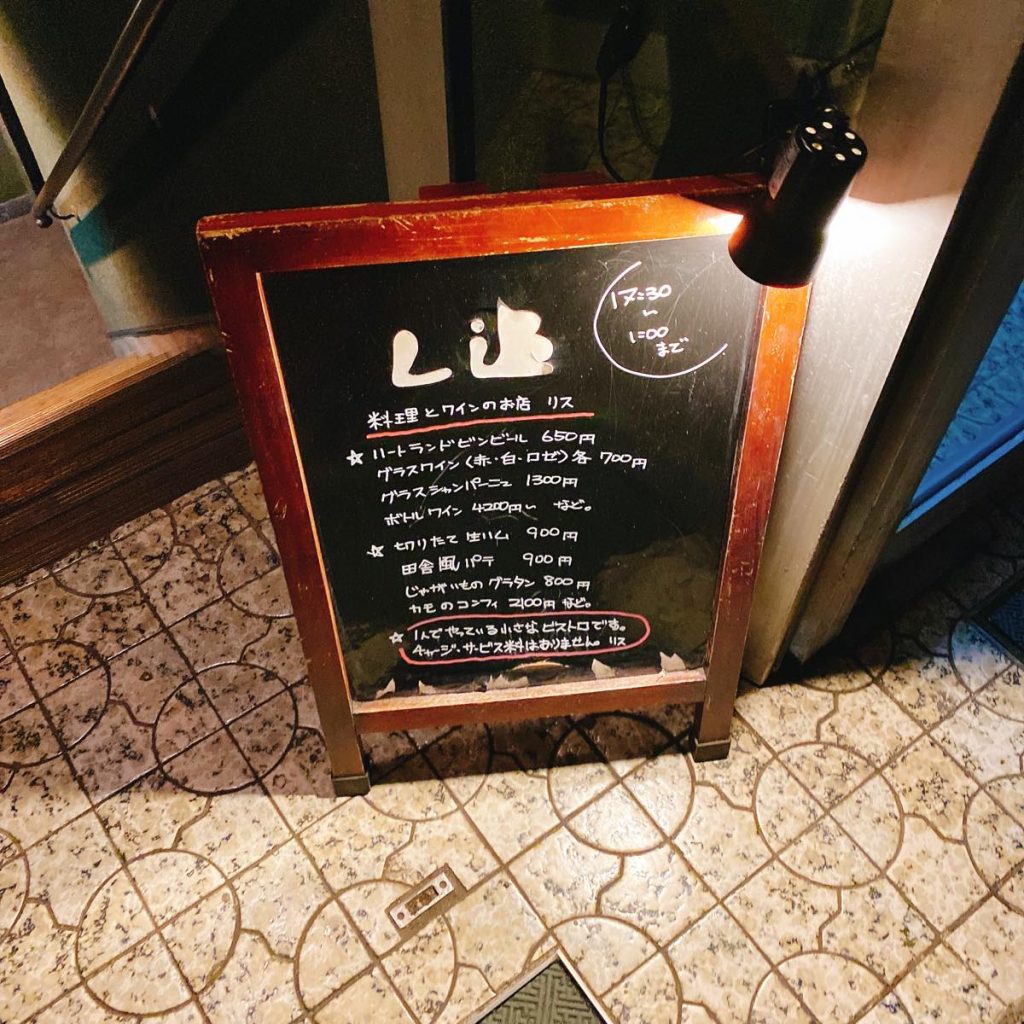 17:30
～
1:00
まで
Lis
料理とワインのお店 リス
☆ ハートランドビンビール 650円
グラスワイン〈赤・白・ロゼ〉各 700円
グラスシャンパーニュ 1300円
ボトルワイン 4200円～ など。
☆ 切りたて生ハム 900円
田舎風パテ 900円
じゃがいものグラタン 800円
カモのコンフィ 2100円 など。
☆ 1人でやっている小さなビストロです。
チャージ・サービス料はありません。リス